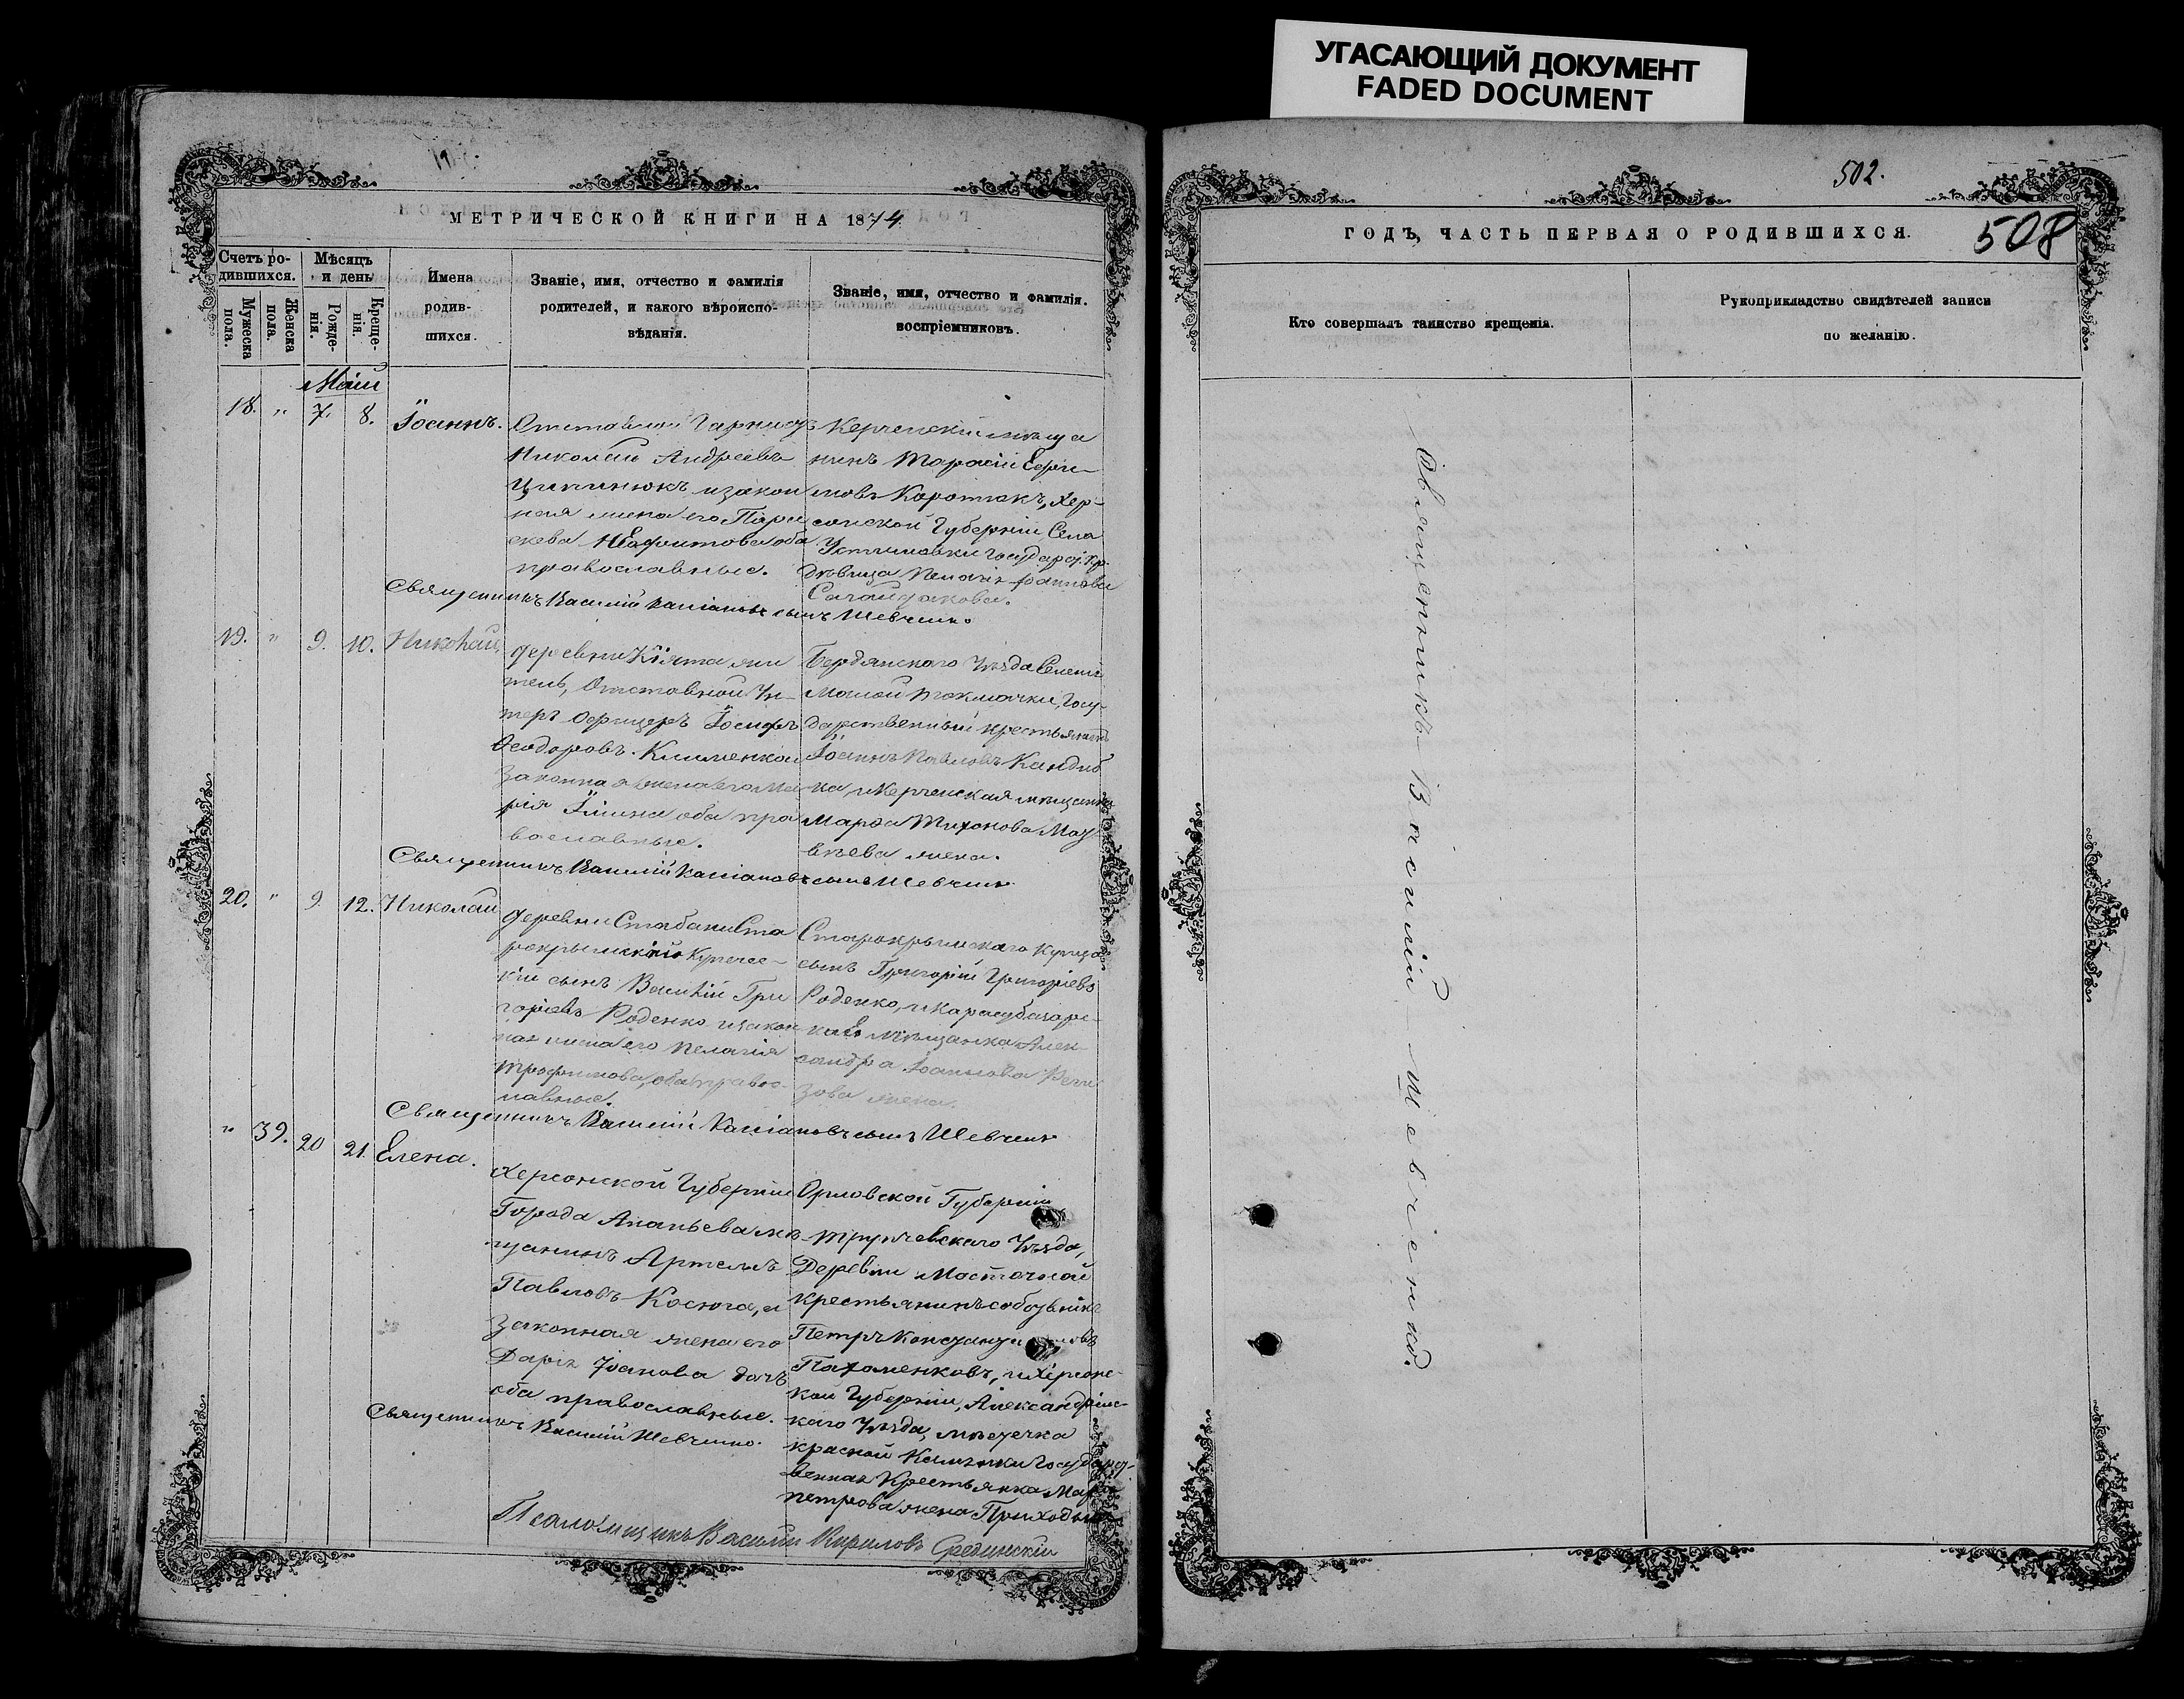 УГАСАЮЩИЙ ДОКУМЕНТ
FADED DOCUMENT
МЕТРИЧЕСКОЙ КНИГИ НА 1874
Счетъ ро-
дившихся.
Мужеска
пола.
Женска
пола.
Мѣсяцъ
и день
Рожде-
нія.
Креще-
нія.
Имена
родив-
шихся.
Званіе, имя, отчество и фамилія
родителей, и какого вѣроиспо-
вѣданія.
Званіе, имя, отчество и фамилія.
воспріемниковъ.
Маій
18. " 7. 8. Іоаннъ.
Николай Андреевъ
екева оба
православные.
Керченскій мѣща
нинъ Тарасій
мовъ Коротакъ, Хер-
сонской Губерніи Села
дѣвица Пелагія Іоаннова
Священникъ Василій Кассіановъ сынъ Шевченко
19. " 9. 10. Николай,
деревни Кіята жи
тель, Отставной Ун-
теръ Офицеръ Іосифъ
Ѳеодоровъ Клименко и
Законная жена его Ма
рія оба пра
вославные.
Бердянскаго Уѣзда Селенія
Малой Токмачки, Госу-
дарственный крестьянинъ
Іоаннъ Павловъ Кандиб
ка, и Керченская мѣщанка
Марфа Тихонова
жена.
Священникъ Василій Кассіановъ сынъ Шевченко
20. " 9. 12. Николай
деревни
рокрымскій Купечес-
кій сынъ Василій Гри
горіевъ Роденко и закон
ная жена его Пелагія
Трофимова, оба правос-
лавные.
Старокрымскаго Купца
сынъ Григорій Григоріевъ
Роденко, и Карасубазарс-
кая мѣщанка Алек-
сандра Іоаннова
жена.
Священникъ Василій Кассіановъ сынъ Шевченко
" 39. 20 21. Елена.
Херсонской Губерніи
Города Ананьева мѣ-
щанинъ Артемъ
Павловъ Косюга, и
Законная жена его
Дарія Іоанова дочь
оба православные.
Орловской Губерніи
Трупчевскаго Уѣзда,
Деревни Мосточной
крестьянинъ собственникъ
Петръ
Пахоменковъ, и Херсонс-
кой Губерніи, Александрійс-
каго Уѣзда, мѣстечка
красной Каменки Государст-
венная Крестьянка Марія
петрова жена Приходько
Священникъ Василій Шевченко.
Псаломщикъ Василій Кириловъ Срединскій
502.
508
ГОДЪ, ЧАСТЬ ПЕРВАЯ О РОДИВШИХСЯ.
Кто совершалъ таинство крещенія.
Рукоприкладство свидѣтелей записи
по желанію.
Священникъ Василій Шевченко.